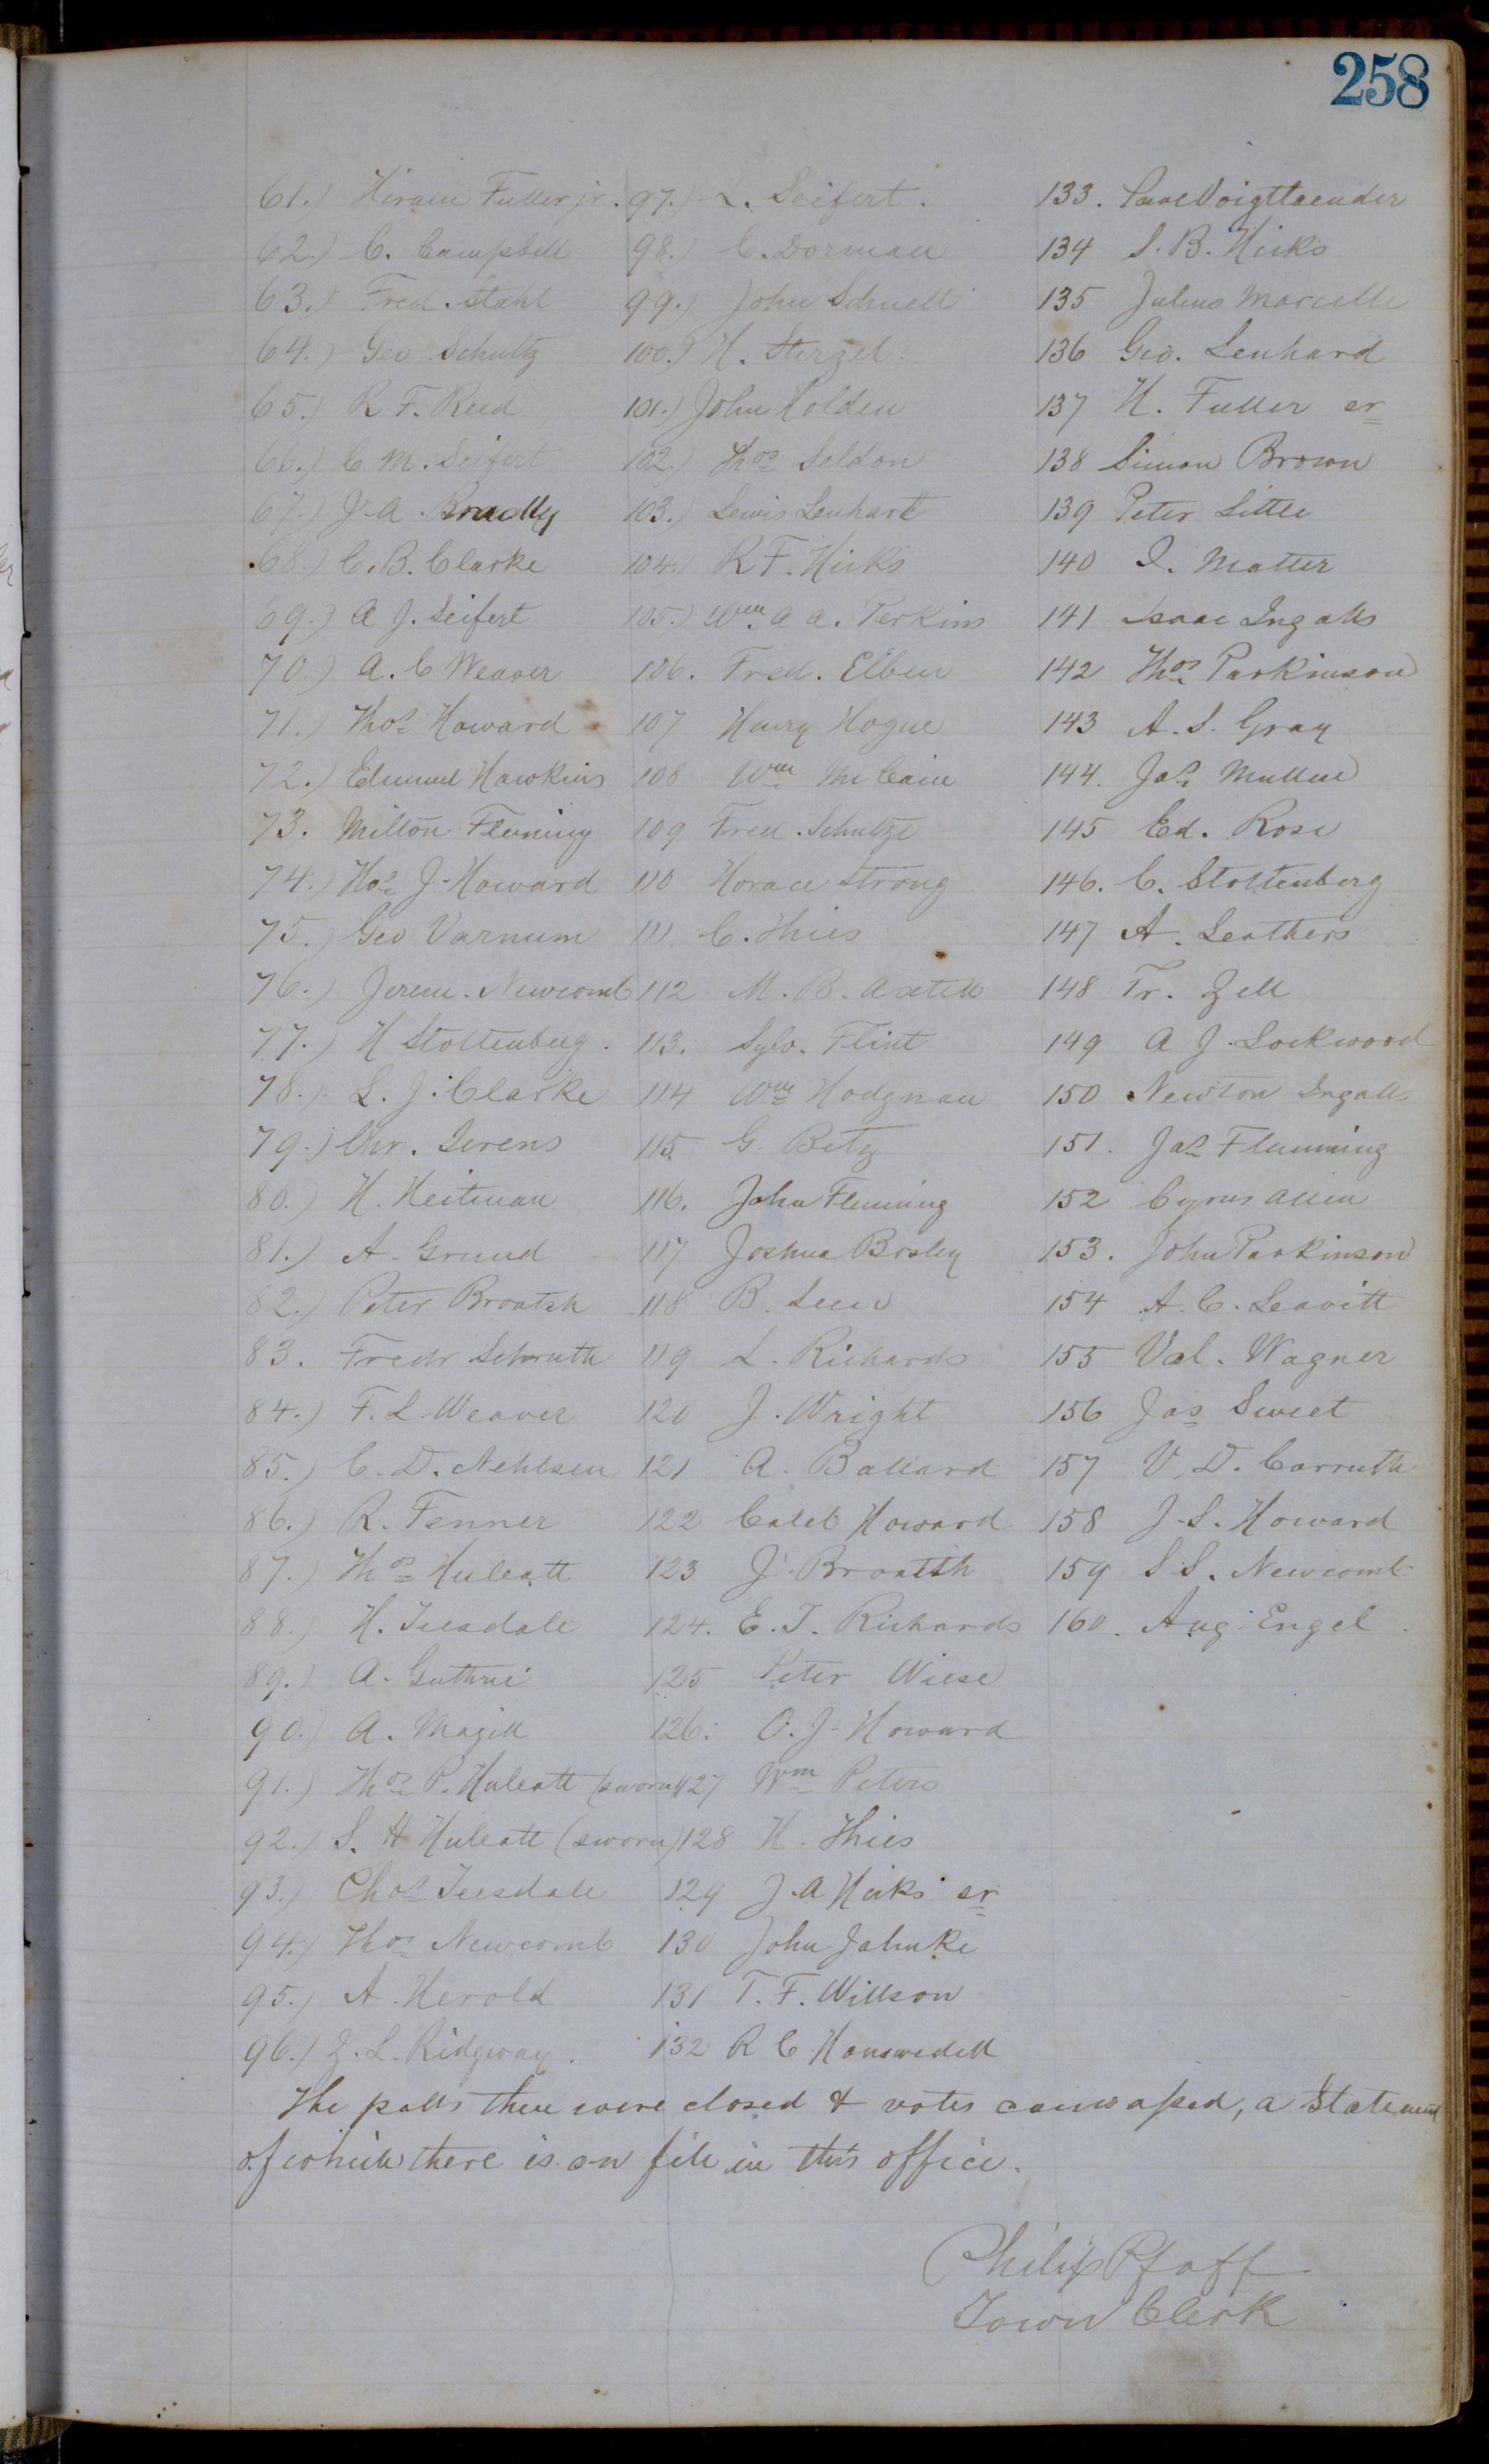 258
61.) Hiram Fuller jr.
62.) C. Campbell
63.) Fred. Stahl
64.) Geo Schultz
65.) R F. Reed
66.) C M. Seifert
67.) J. A. Bradley
68.) C. B. Clarke
69.) A J. Seifert
70.) A. C Weaver
71.) Thos Howard
72.) Edmund Hawkins
73. Milton Fleming
74.) Thos J. Howard
75.) Geo Varnum
76.) Jerem. Newcomb
77.) H Stoltenberg.
78.) L. J. Clarke
79.) Chr. Ivens
80.) H. Heitman
81.) A. Grund
82.) Peter Broatsh
83. Fredr Schruth
84.) F. L. Weaver
85.) C. D. Nehlsen
86.) R. Fenner
87.) Thos Huleatt
88.) H. Teesdale
89.) A. Guthrie
90.) A. Magill
91.) Thos P. Huleatt (sworn)
92.) S. H Huleatt (sworn)
93.) Chas Teesdale
94.) Thos Newcomb
95.) A. Herold
96.) Z. L. Ridgway.
97.) L. Seifert.
98.) C. Dorman
99.) John Schnell
100.) H. Sterzel.
101.) John Holden
102.) Thos Seldon
103.) Lewis Lenhart
104.) R F. Hicks
105.) Wm. A A. Perkins
106. Fred. Elben
107 Henry Hogue
108 Wm McCain
109 Fred. Schultze
110 Horace Strong
111 C. Thies
112 M. B. Axtell
113. Sylv. Flint
114 Wm Hodgnau
115 G. Betz
116. John Fleming
117 Joshua Bosley
118 B.
119 L. Richards
120 J. Wright
121 A. Ballard
122 Caleb Howard
123 J. Broatsh
124. E. T. Richards
125 Peter Wiese
126. O. J. Howard
127 Wm Peters
128 H. Thies
129 J. A Hicks sr
130 John Jahnke
131 T. F. Willson
132 R C Hanswedell
133. Paul Voigtlaender
134 S. B. Hicks
135 Julius Marcelle
136 Geo. Lenhard
137 H. Fuller sr
138 Simon Brown
139 Peter Little
140 I. Matter
141 Isaac Ingalls
142 Thos Parkinson
143 A. S. Gray
144. Jas Mullen
145 Ed. Rose
146. C. Stoltenberg
147 A. Leathers
148 Fr. Zell
149 A J. Lockwood
150 Newton Ingalls
151. Jas Flemming
152 Cyrus Allen
153. John Parkinson
154 A. C. Leavitt
155 Val. Wagner
156 Jas Sweet
157 V. D. Carruth
158 J. S. Howard
159 S S. Newcomb
160. Aug Engel.
The polls then were closed & votes canvassed, a Statement
of which there is on file in this office.
Philip Pfaff
Town Clerk